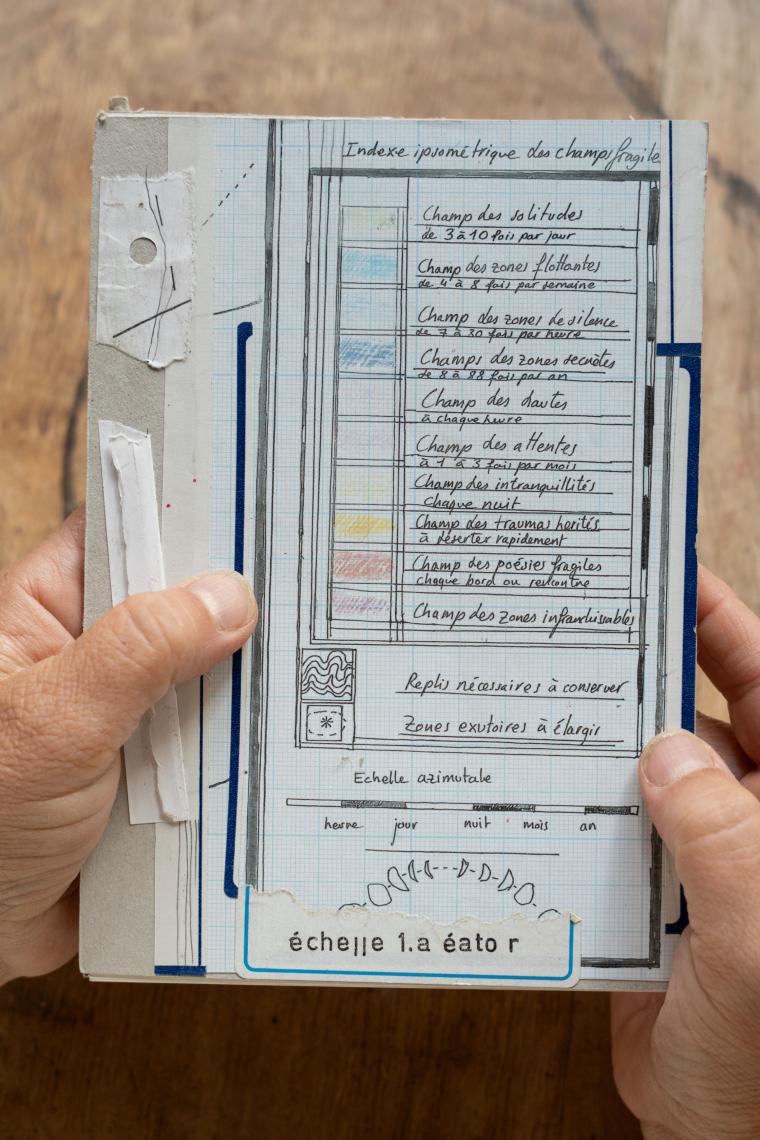 Indexe ipsométrique des champs fragile
Champ des solitudes
de 3 à 10 fois par jour
Champ des zones flottantes
de 4 à 8 fois par semaine
Champ des zones de silence
de 7 à 30 fois par heure
Champs des zones secrètes
de 8 à 88 fois par an
Champ des doutes
à chaque heure
Champ des attentes
à 1 à 3 fois par mois
Champ des intranquillités
chaque nuit
Champ des traumas hérités
à déserter rapidement
Champ des poésies fragiles
chaque bord ou rencontre
Champ des zones infranchissables
Replis nécessaires à conserver
Zones exutoires à élargir
Echelle azimutale
heure jour nuit mois an
échelle 1.a éato r